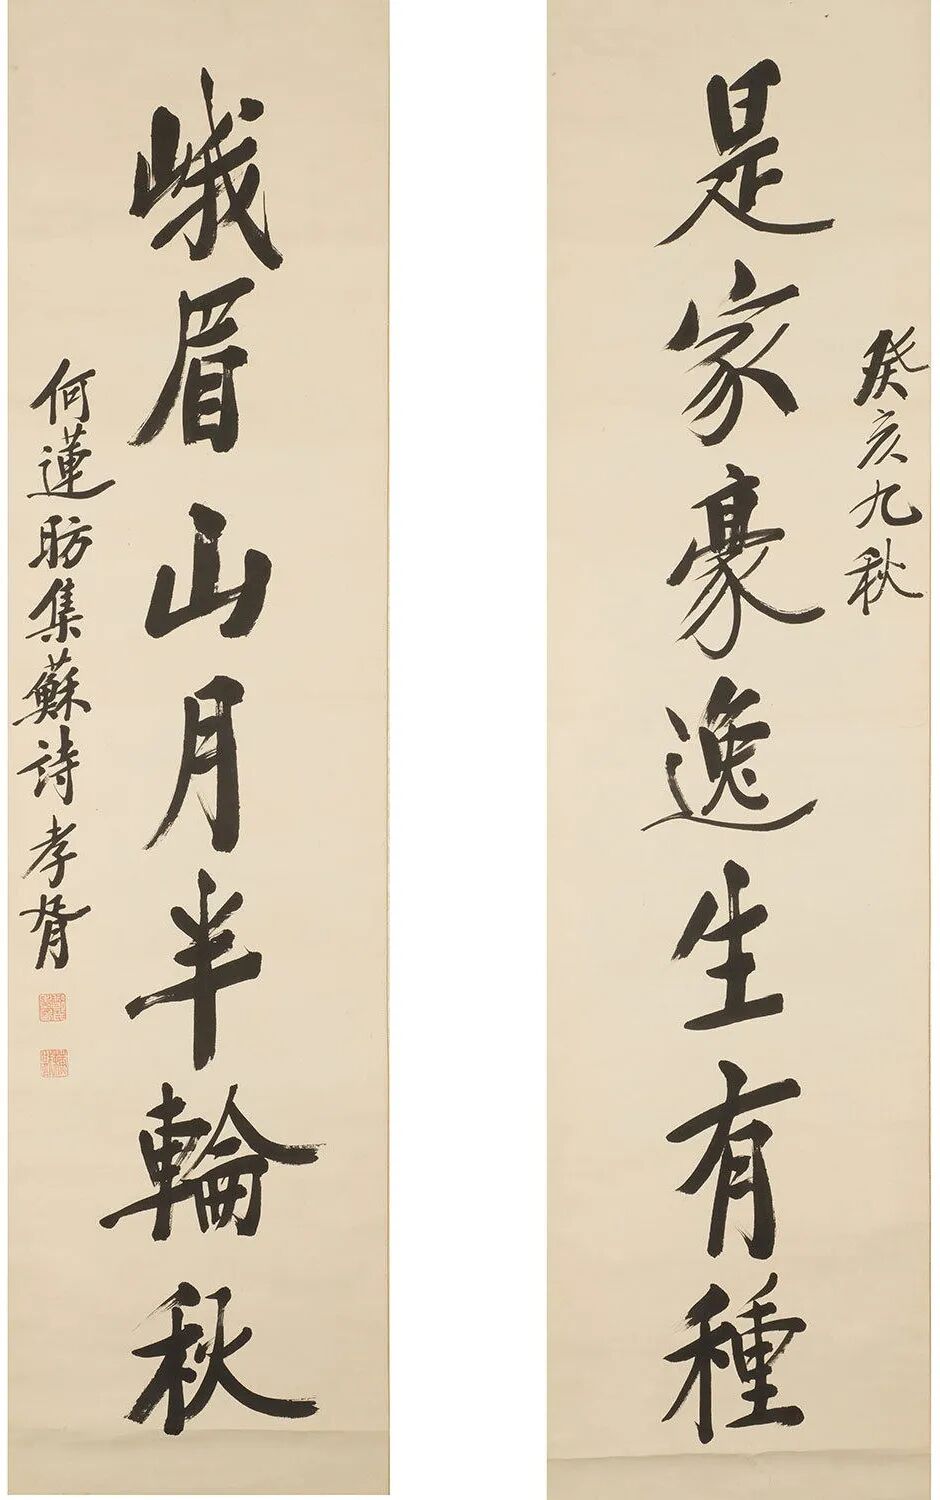 癸亥九秋
是家豪逸生有種
峨眉山月半輪秋
何蓮舫集蘇詩孝胥